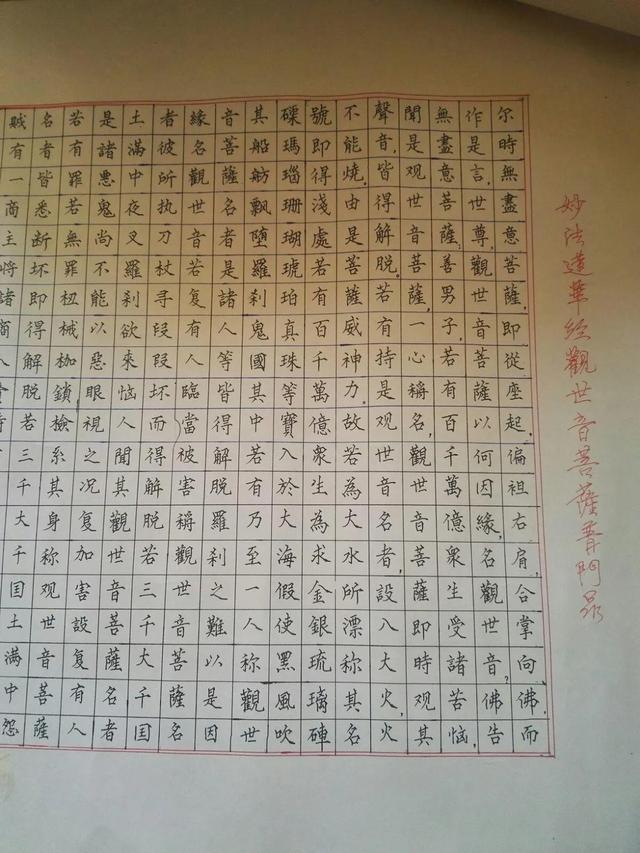 妙法蓮華經觀世音菩薩普門品
尔時無盡意菩薩,即從座起,偏袒右肩,合掌向佛,而
作是言,世尊,觀世音菩薩以何因緣,名觀世音,佛告
無盡意菩薩,善男子,若有百千萬億衆生受諸苦惱,
聞是观世音菩薩,一心稱名,觀世音菩薩即時观其
聲音,皆得解脫。若有持是观世音名者,設入大火,火
不能燒,由是菩薩威神力故若為大水所漂称其名
號即得淺處若有百千萬億衆生為求金銀琉璃硨
磲瑪瑙珊瑚琥珀真珠等寶入於大海假使黑風吹
其船舫飄堕羅刹鬼國其中若有乃至一人称觀世
音菩薩名者是諸人等皆得解脫羅刹之難以是因
緣名觀世音若复有人臨當被害稱觀世音菩薩名
者彼所执刀杖寻段段坏而得解脫若三千大千国
土滿中夜叉羅刹欲來恼人聞其觀世音菩薩名者
是諸悪鬼尚不能以惡眼視之况复加害設复有人
若有罪若無罪杻械枷鎖檢系其身称观世音菩薩
名者皆悉断坏即得解脫若三千大千国土满中怨
賊有一商主将諸商